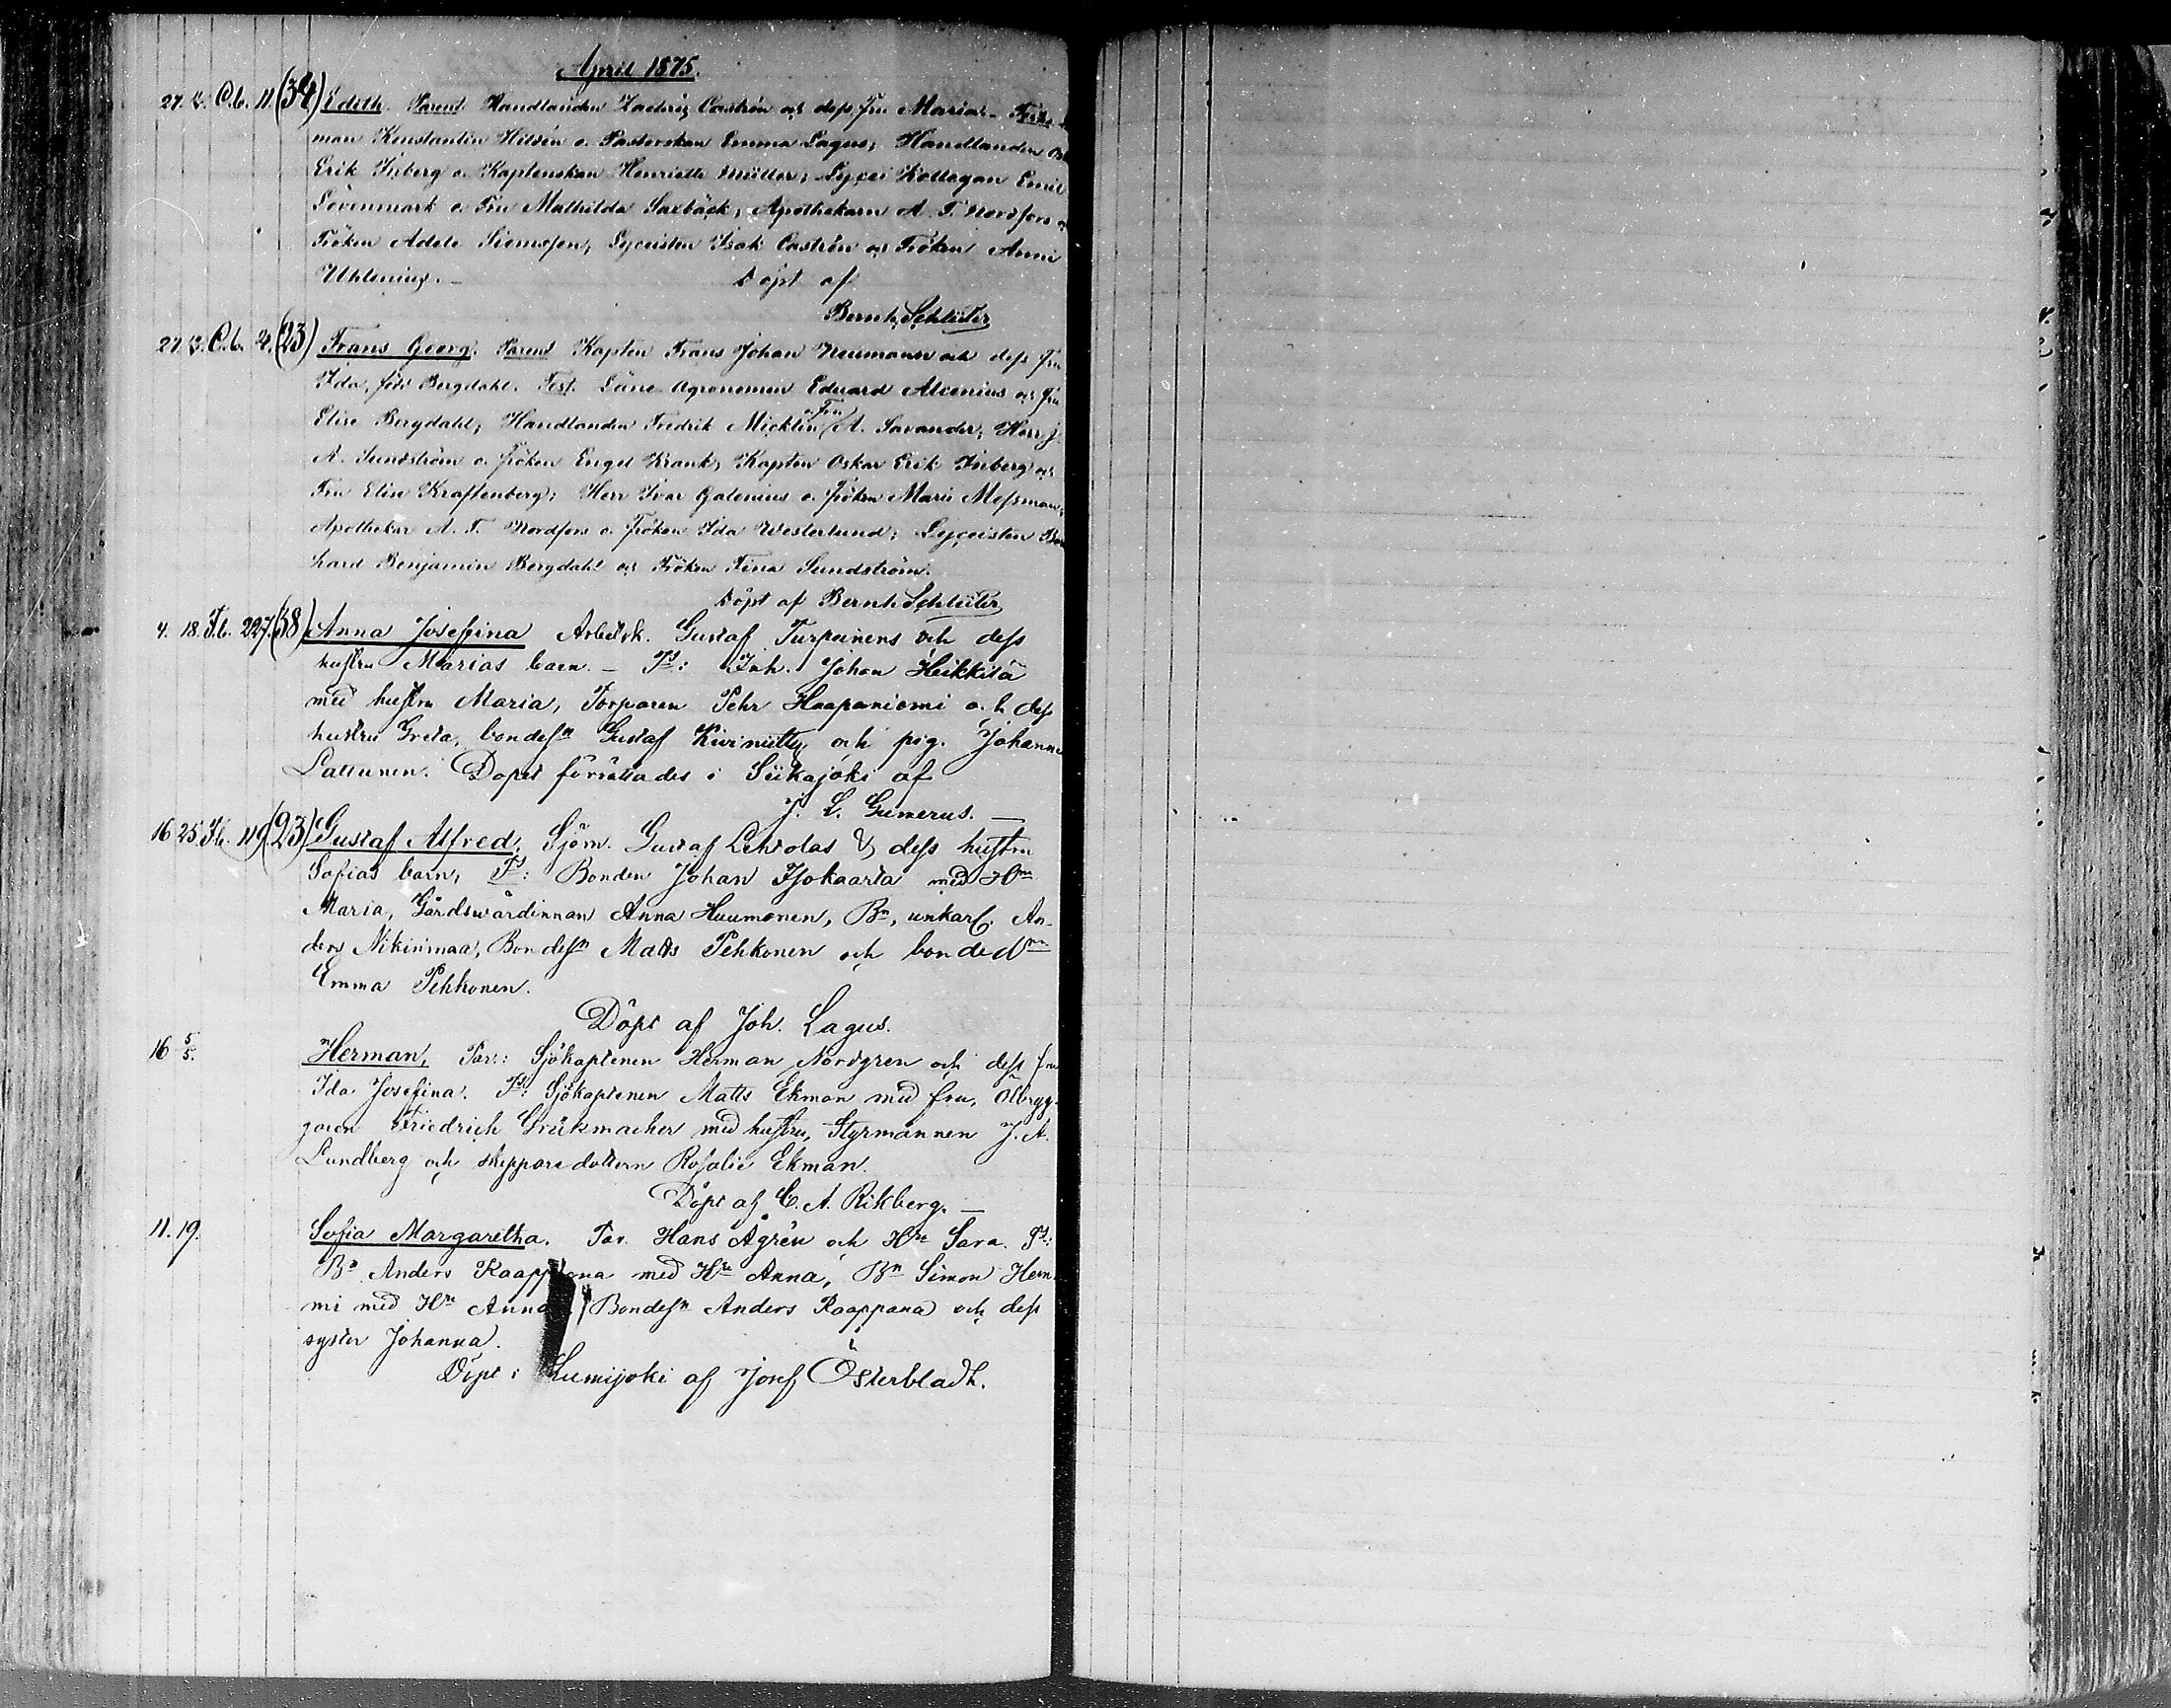 April 1875.
27. C.b. 11. (34) Edith. Parent Handlanden Zachris Castrén och dess fru Maria. - Test.
man Konstantin Hildén o. Pastorskan Emma Lagus; Handlanden
Erik Frberg o. Kaptenskan Henriette Müller; Lycei Kollegan Emil
Lövenmark o. Fru Mathilda Saxbäck; Apothekarn A. T. Nordfors o
Fröken Adele Siemssen; Lyceisten Isak Castrén och Fröken Anni
Uhlenius. - Döpt af
Bernh. Schlüter
27. C.b. 2. (23) Frans Georg. Parent Kapten Frans Johan Neumann och dess fru
Ida, född Bergdahl. Test. Läns Agronomen Eduard Alcenius och fru
Elise Bergdahl; Handlanden Fredrik Micklin o. Fru A. Savander; Herr J.
A. Sundström o. fröken Engel Krank; Kapten Oskar Erik Frberg och
Fru Elise Kraftenberg; Herr Ivar Galenius o. fröken Maria Messman;
Apothekar A. T. Nordfors o. fröken Ida Westerlund; Lyceisten
hard Benjamin Bergdahl och Fröken Fina Sundström.
Döpt af Bernh. Schlüter
4. 18. I.b. 227. (38) Anna Josefina Arbetsk. Gustaf Turpeinens och dess
hustru Marias barn. - Ts: Inh. Johan Heikkilä
med hustru Maria, Torparen Pehr Haapaniemi o.h. dess
hustru Greta, bondesn Gustaf Kiviniitty och pig. Johanna
Lattunen. Dopet förrättades i Siikajoki af
J. L. Gumerus. -
16 25. I.b. 119 (23) Gustaf Alfred, Sjöm. Gustaf Lehtolas & dess hustru
Sofias barn, Ts: Bonden Johan Isokaarta med Hru
Maria, Gårdswärdinnan Anna Huumonen, Bn, unkarl. An-
ders Nikinmaa, Bondesn Matts Pehkonen och bonded
Emma Pehkonen.
Döpt af Joh. Lagus.
16 5/5. Herman, Par.: Sjökaptenen Herman Nordgren och dess fru
Ida Josefina. Ts: Sjökaptenen Matts Ekman med fru, Ölbryg-
garen Friedrich Grükmacher med hustru, Styrmannen J. A.
Lundberg och skepparedottern Rosalie Ekman.
Döpt af C. A. Rikberg. -
11. 19. Sofia Margaretha. Par. Hans Ågrén och Hru Sara. Ts:
Bn Anders Raappana med Hru Anna, Bn Simon Hem-
mi med Hru Anna Bondesn Anders Raappana och dess
syster Johanna.
Döpt i Lumijoki af Josef Österbladh.